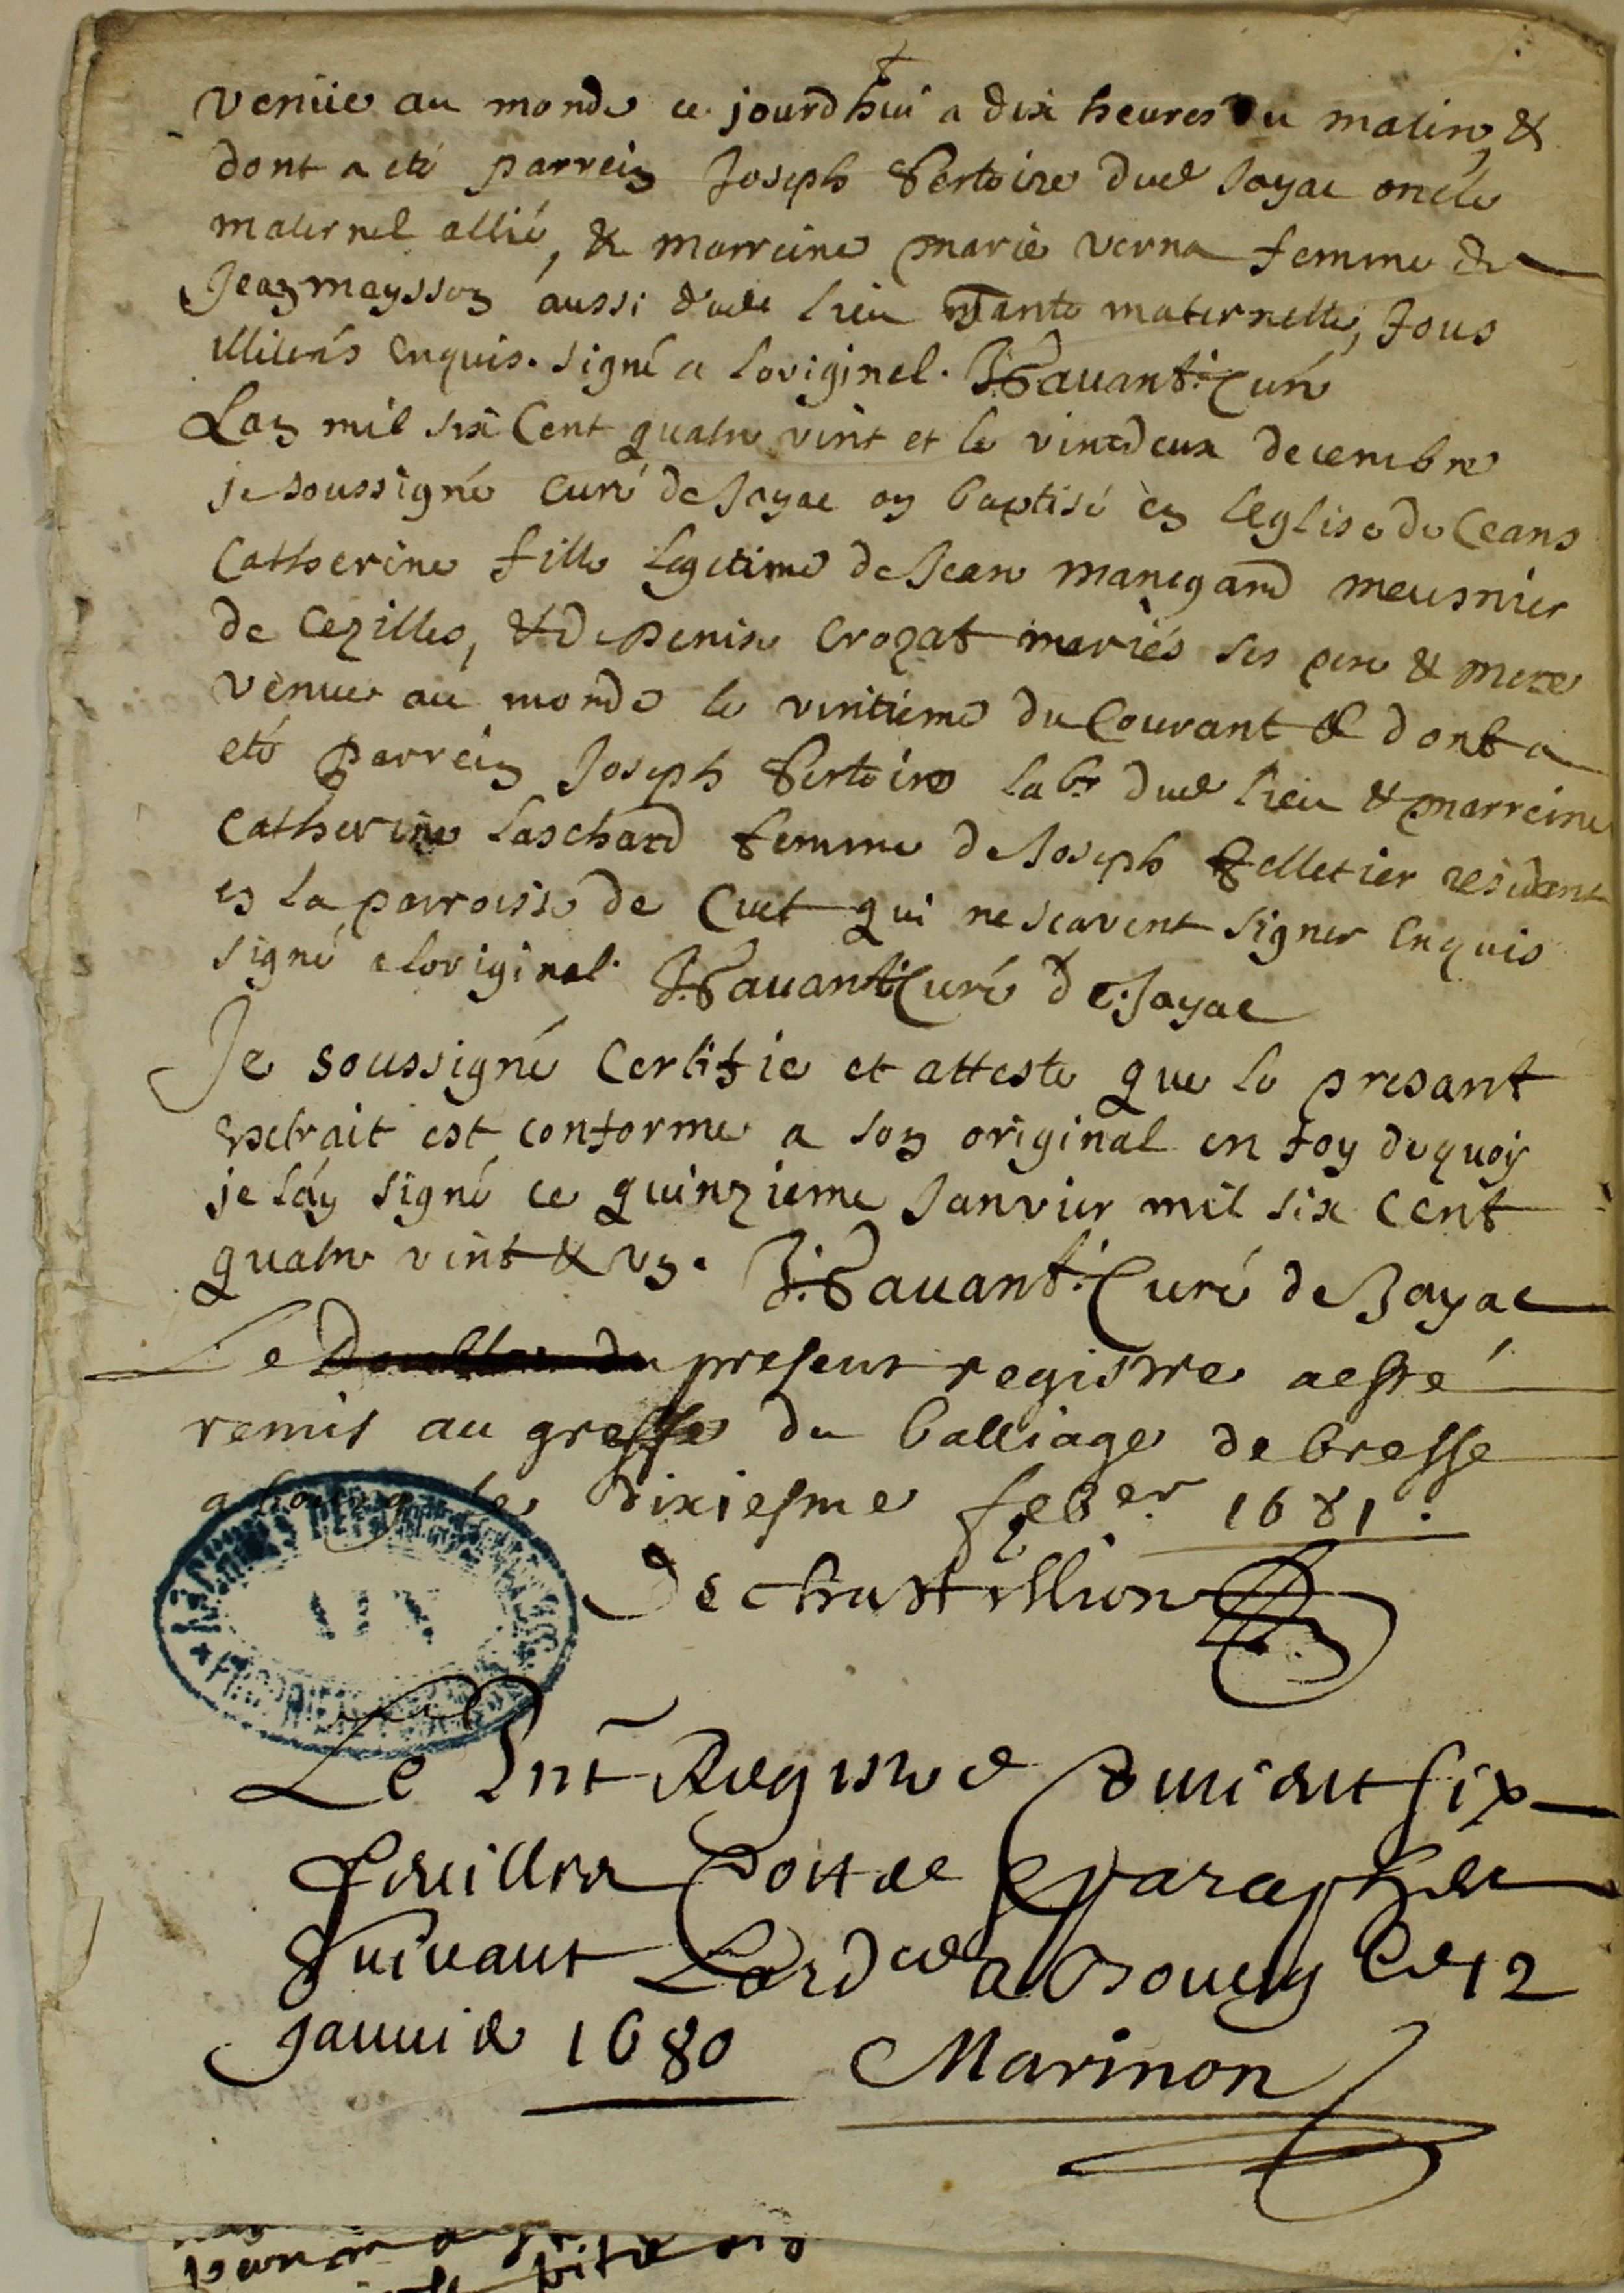 venüe au monde ce jourd'hui a dix heures du matin, &
dont a eté parrein Joseph Pertoire dud Jayac oncle
maternel allié, & marreine marie verna femme de
Jean maysson aussi dud lieu Tante maternelle, Tous
illiterés enquis. signé a loriginel. J. Pavant. Curé
Lan mil six Cent quatre vint et le vintdeux decembre
je soussigné Curé de Jayac ay baptisé en leglise de Ceans
Catherine fille legitime de Jean manegand meusnier
de Cezilles, & de Denise Crozat mariés ses pere & mere
venue au monde le vintieme du Courant & dont a
eté parrein Joseph Pertoire labr dud lieu & marreine
Catherine Laschard femme de Joseph Pelletier residente
en la parroisse de Cuet qui ne scavent signer enquis
signé a loriginel. J. Pavant Curé de Jayac
Je soussigné Certifie et atteste que le presant
extrait est conforme a son original en foy dequoy
je lay signé ce quinzieme Janvier mil six cent
quatre vint & un. J. Pavant. Curé de Jayac
Le present registre a esté
remis au greffe du balliage de bresse
a bourg le dixiesme feber 1681.
De chastillion
Le pnt Registre Contient six
feuilles Cotte & paraphe
Suivant Lordce a Bourg Le 12
Janvie 1680 Marinon